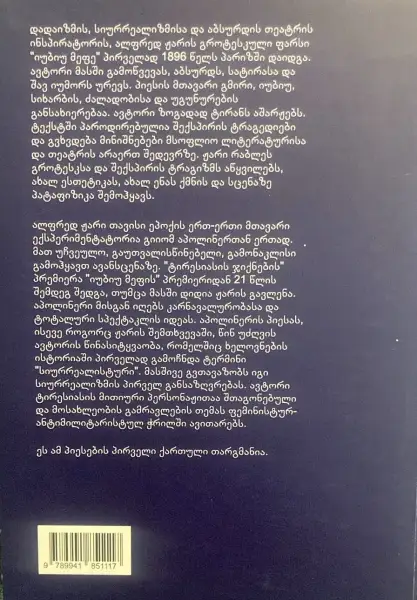 დადაიზმის, სიურრეალიზმისა და აბსურდის თეატრის
ინსპირატორის, ალფრედ ჟარის გროტესკული ფარსი
"იუბიუ მეფე" პირველად 1896 წელს პარიზში დაიდგა.
ავტორი მასში გამოწვევას, აბსურდს, სატირასა და
შავ იუმორს ურევს. პიესის მთავარი გმირი, იუბიუ,
სიხარბის, ძალადობისა და უგუნურების
განსახიერებაა. ავტორი ზოგადად ტირანს აშარჟებს.
ტექსტში პაროდირებულია შექსპირის ტრაგედიები
და გვხვდება მინიშნებები მსოფლიო ლიტერატურისა
და თეატრის არაერთ შედევრზე. ჟარი რაბლეს
გროტესკსა და შექსპირის ტრაგიზმს აწყვილებს,
ახალ ესთეტიკას, ახალ ენას ქმნის და სცენაზე
პატაფიზიკა შემოჰყავს.
ალფრედ ჟარი თავისი ეპოქის ერთ-ერთი მთავარი
ექსპერიმენტატორია გიიომ აპოლინერთან ერთად.
მათ უჩვეულო, გაუთვალისწინებელი, გამონაკლისი
გამოჰყავთ ავანსცენაზე. "ტირესიასის ჯიქნების"
პრემიერა "იუბიუ მეფის" პრემიერიდან 21 წლის
შემდეგ შედგა, თუმცა მასში დიდია ჟარის გავლენა.
აპოლინერი მისგან იღებს კარნავალურობასა და
ტოტალური სპექტაკლის იდეას. აპოლინერის პიესას,
ისევე როგორც ჟარის შემთხვევაში, წინ უძღვის
ავტორის წინასიტყვაობა, რომელშიც ხელოვნების
ისტორიაში პირველად გამოჩნდა ტერმინი
"სიურრეალისტური". მასშივე გვთავაზობს იგი
სიურრეალიზმის პირველ განსაზღვრებას. ავტორი
ტირესიასის მითიური პერსონაჟითაა შთაგონებული
და მოსახლეობის გამრავლების თემას ფემინისტურ-
ანტიმილიტარისტულ ჭრილში ავითარებს.
ეს ამ პიესების პირველი ქართული თარგმანია.
9 789941 851117